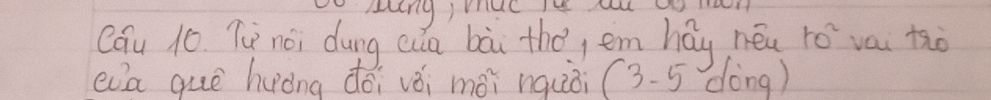 Câu 10. Từ nội dung của bài thơ, em hãy nêu rõ vai trò
của quê hương đối với mỗi người (3-5 dòng)